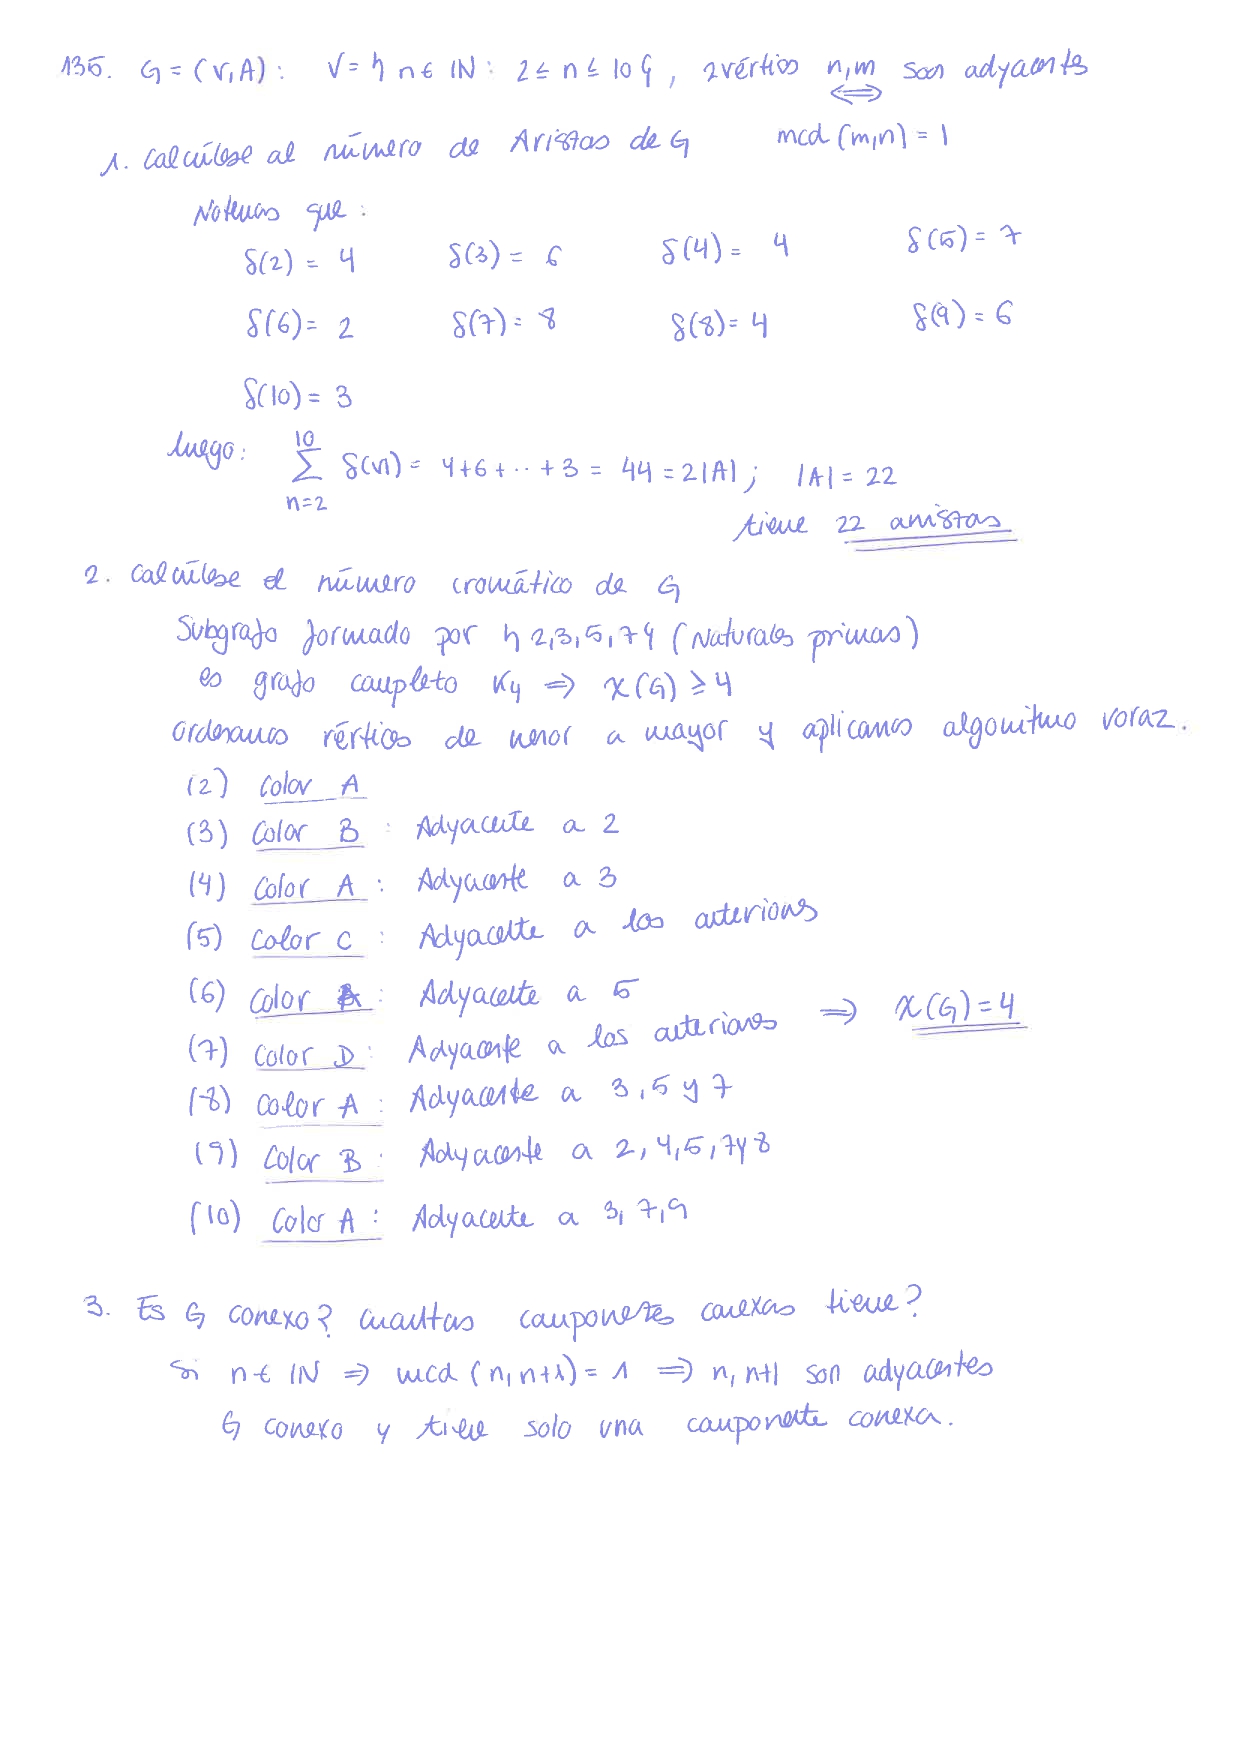 135. G = (V,A): V = { n ∈ IN : 2 ≤ n ≤ 10 }, 2 vértices n,m son adyacentes
⟺
1. Calcúlese al número de Aristas de G mcd (m,n) = 1
Notemos que :
δ(2) = 4 δ(3) = 6 δ(4) = 4 δ(5) = 7
δ(6) = 2 δ(7) = 8 δ(8) = 4 δ(9) = 6
δ(10) = 3
luego: ∑_{n=2}^{10} δ(vi) = 4+6+ ·· +3 = 44 = 2|A| ; |A| = 22
tiene 22 aristas
2. Calcúlese el número cromático de G
Subgrafo formado por { 2,3,5,7 } (Naturales primos)
es grafo completo K4 ⇒ χ(G) ≥ 4
Ordenamos vértices de menor a mayor y aplicamos algoritmo voraz.
(2) Color A
(3) Color B : Adyacente a 2
(4) Color A : Adyacente a 3
(5) Color C : Adyacente a los anteriores
(6) Color A : Adyacente a 5
(7) Color D : Adyacente a los anteriores ⇒ χ(G) = 4
(8) Color A : Adyacente a 3,5 y 7
(9) Color B : Adyacente a 2,4,5,7 y 8
(10) Color A : Adyacente a 3,7,9
3. Es G conexo? cuantas componentes conexas tiene?
Si n ∈ IN ⇒ mcd (n,n+1) = 1 ⇒ n, n+1 son adyacentes
G conexo y tiene solo una componente conexa.